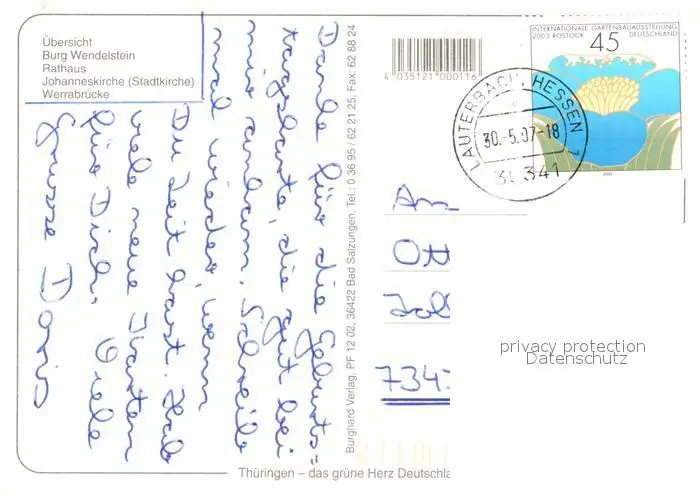 Übersicht
Burg Wendelstein
Rathaus
Johanneskirche (Stadtkirche)
Werrabrücke
Danke für die Geburts=
tagskarte, die gut bei
mir ankam. Schreibe
mal wieder, wenn
Du Zeit hast. Hab
viele neue
für Dich. Viele
Grüsse Doris
Burghard Verlag, PF 12 02, 36422 Bad Salzungen, Tel.: 0 36 95 / 62 21 25, Fax: 62 88 24
4 035121 000116
INTERNATIONALE GARTENBAUAUSSTELLUNG
2003 ROSTOCK DEUTSCHLAND
45
LAUTERBACH, HESSEN
30.-5.07-18
36341
An
Ott
734
privacy protection
Datenschutz
Thüringen – das grüne Herz Deutschla